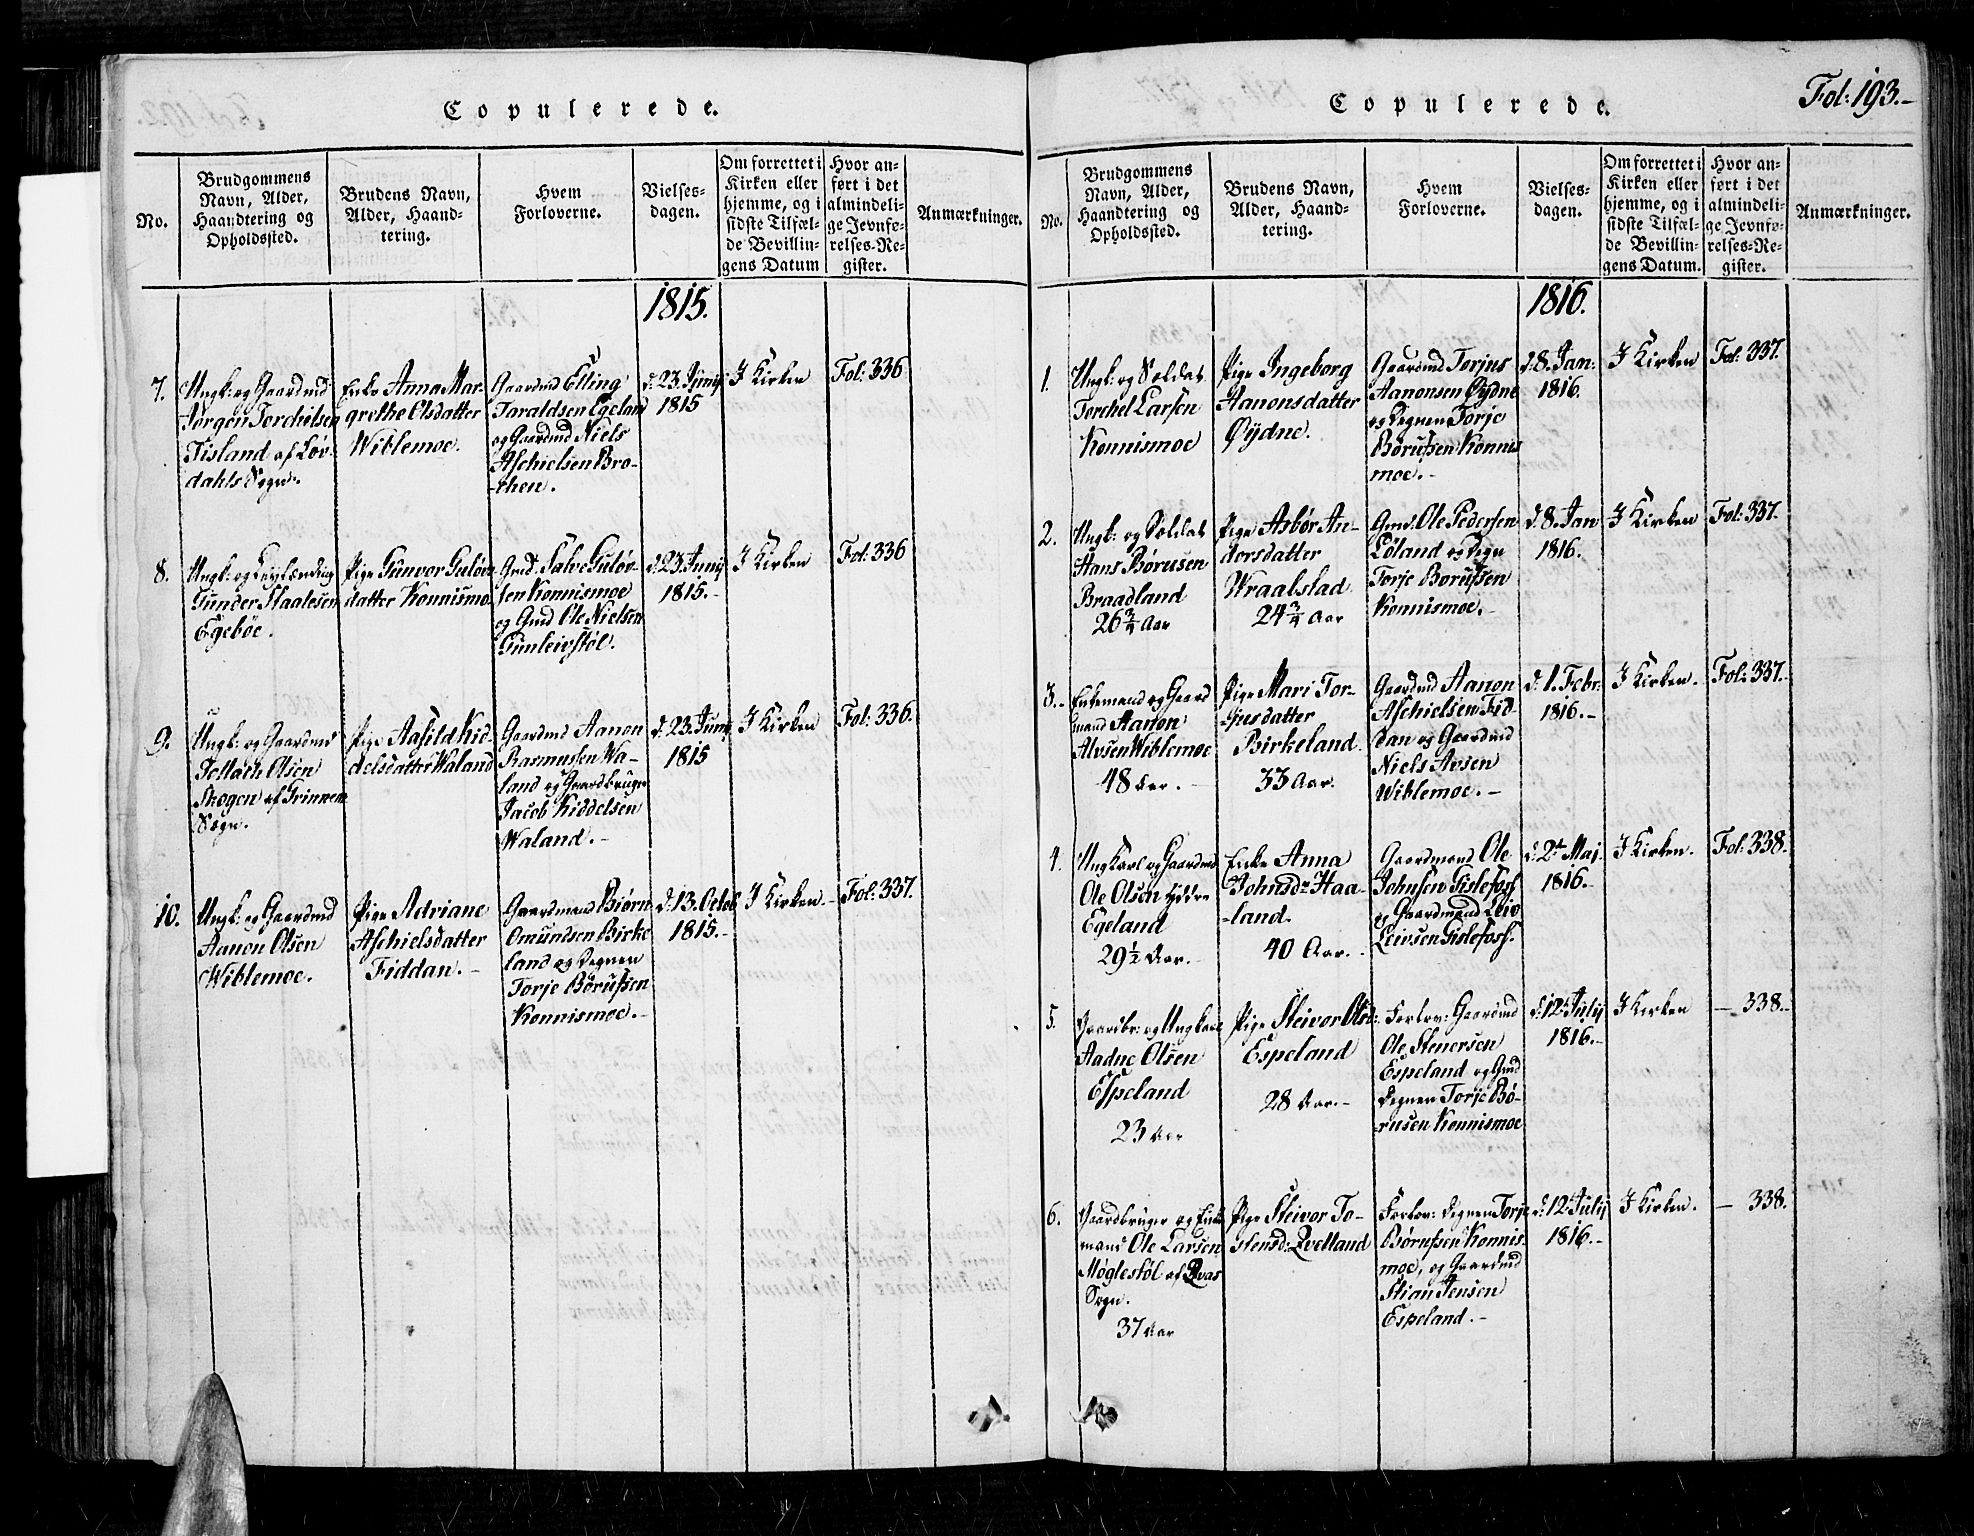 Copulerede.
No.
Brudgommens
Navn, Alder,
Haandtering og
Opholdssted.
Brudens Navn,
Alder, Haand-
tering.
Hvem
Forloverne.
Vielses-
dagen.
Om forrettet i
Kirken eller
hjemme, og i
sidste Tilfæl-
de Bevillin-
gens Datum
Hvor an-
ført i det
almindeli-
ge Jevnfø-
relses-Re-
gister.
Anmærkninger.
1815.
7.
Ungk: og Gaardmd
Jørgen Torchelsen
Tisland af Løv-
dahls Sogn.
Enke Anna Mar-
grethe Olsdatter
Wiblemoe.
Gaardmd Elling
Taraldsen Egeland
og Gaardmd Niels
Aschielsen Bro-
-then.
d: 23. Junij
1815
I Kirken
Fol: 336
8.
Ungk: og Leylænding
Gunder Staalesen
Egebøe.
Pige Gunvor Guløvs
datter Konnismo.
Gmd: Salve Guløv-
sen Konnismoe
og Gmd Ole Nielsen
Gunleivstøl.
d. 23 Junij
1815.-
I Kirken
Fol: 336
9.
Ungk: og Gaardmd
Tellach Olsen
Skogen af Grinnem
Sogn.
Pige Aasild Kid-
delsdatter Waland
Gaardmd Aanon
Rasmussen Wa-
land og Gaardbruger
Jacob Kiddelsen
Waland.-
d. 23. Junij
1815
I Kirken
Fol: 336.
10.
Ungk: og Gaardmd
Aanon Olsen
Wiblemoe.
Pige Adriane
Aschielsdatter
Fiddan.-
Gaardmand Biørn
Omundsen Birke
land og Degnen
Torje Børussen
Konnismoe.-
d. 13. Octob
1815.-
I Kirken.-
Fol: 337.
Fol: 193.-
Copulerede.
No.
Brudgommens
Navn, Alder,
Haandtering og
Opholdssted.
Brudens Navn,
Alder, Haand-
tering.
Hvem
Forloverne.
Vielses-
dagen.
Om forrettet i
Kirken eller
hjemme, og i
sidste Tilfæl-
de Bevillin-
gens Datum.
Hvor an-
ført i det
almindeli-
ge Jevnfø-
relses-Re-
gister.
Anmærkninger.
1816.
1.
Ungk: og Soldat
Torchel Larsen
Konnismoe
Pige Ingeborg
Aanonsdatter
Øydne.
Gaardmd Torjus
Aanonsen Øydne
og Degnen Torje
Børussen Konnis
moe.-
d. 8. Jan:
1816.
I Kirken
Fol: 337.
2.
Ungk: og Soldat
Hans Børusen
Braadland
26 3/4 Aar
Pige Asbør An-
dorsdatter
Wraalstad
24 3/4 Aar
Gmd: Ole Pedersen
Løland og Degn
Torje Børussen
Konnismoe.-
d. 8. Jan
1816.
I Kirken
Fol: 337.
3.-
Enkemand og Gaard
mand Aanon
Alvsen Wiblemoe
48 Aar.-
Pige Mari Tor-
-jusdatter
Birkeland.
33 Aar.
Gaardmd Aanon
Aschielsen Fid-
dan og Gaardmd
Niels Avsen
Wiblemoe.-
d. 1. Febr:
1816.-
I Kirken.
Fol: 337.
4.
Ung Karl og Gaardmd
Ole Olsen yddre
Egeland
29 1/2 Aar.-
Enke Anna
Johnsdr Haa-
-land.
40 Aar.-
Gaardmand Ole
Johnsen Gislefoss
og Gaardmand Leiv
Leivsen Gislefoss.
d. 2t Maj.
1816.-
I Kirken.
Fol: 338.
5.
Gaardbr: og Ungkarl
Aadne Olsen
Espeland
23 Aar
Pige Sleivor Olsd:
Espeland
28 Aar.-
Forlov: Gaardmd
Ole Stenersen
Espeland og Gmd
Degnen Torje Bø-
-rusen Konnismoe
d. 12. Julij
1816.-
I Kirken
- 338.-
6.
Gaardbruger og Enke
mand Ole Larsen
Møglestøl af Qvas
Sogn.
37 Aar
Pige Sleivor To-
stensd: Qvelland
Forlov: Degnen Torje
Børussen Konnis
moe, og Gaardmd
Stian Jensen
Espeland.-
d. 12. Julij
1816.-
I Kirken.
- 338.